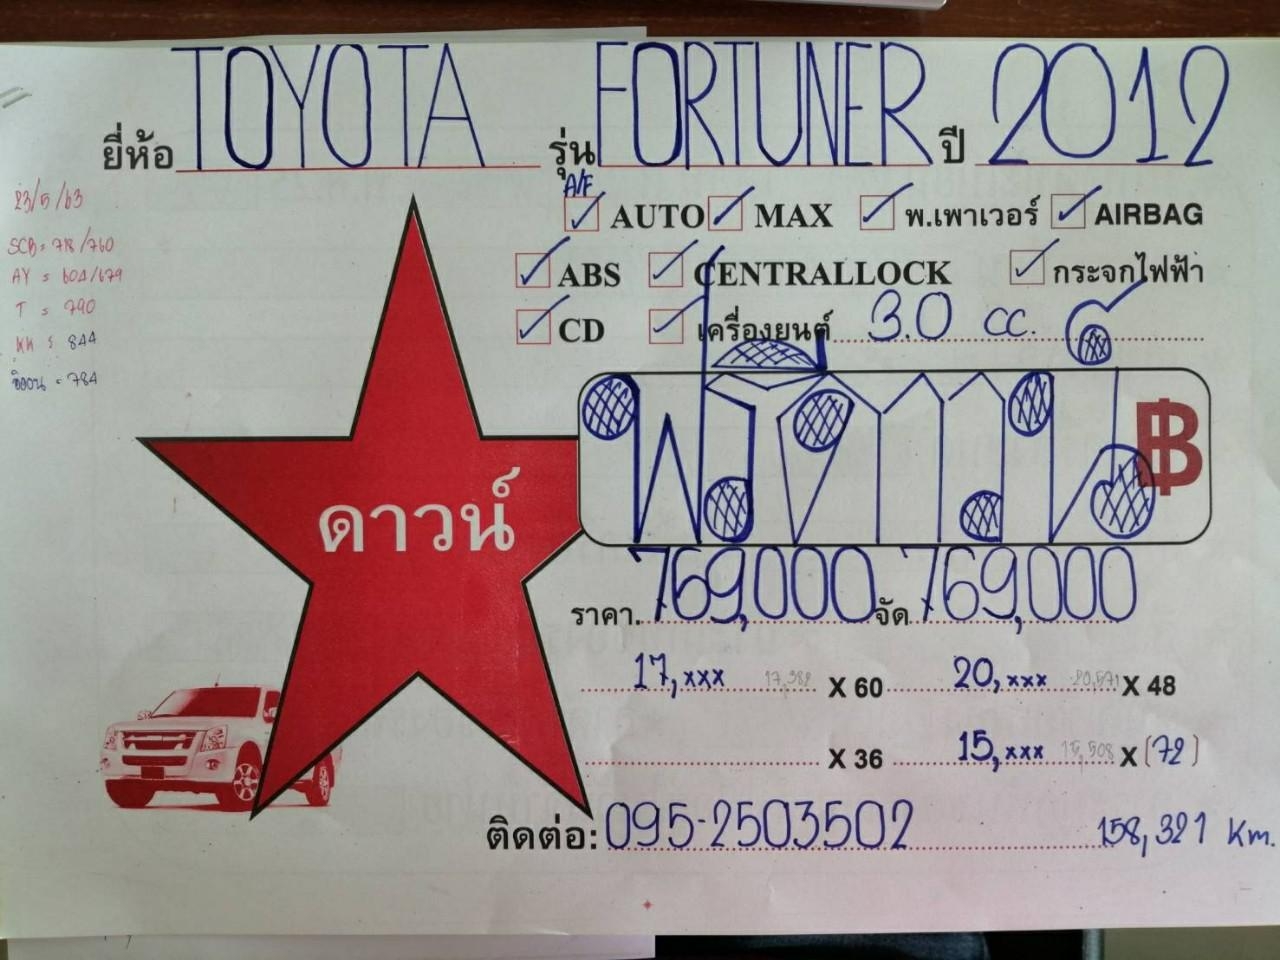 ยี่ห้อ TOYOTA รุ่น FORTUNER ปี 2012
23/5/63
A/F
AUTO MAX พ.เพาเวอร์ AIRBAG
SCB = 718/760
ABS CENTRALLOCK กระจกไฟฟ้า
AY = 604/679
T = 790
CD เครื่องยนต์ 3.0 cc.
KK = 844
= 784
ดาวน์ ฟรีดาวน์ ฿
ราคา. 769,000 จัด 769,000
17,xxx 17,382 X 60 20,xxx 20,571 X 48
X 36 15,xxx 15,508 X (72)
ติดต่อ: 095-2503502 158,321 Km.